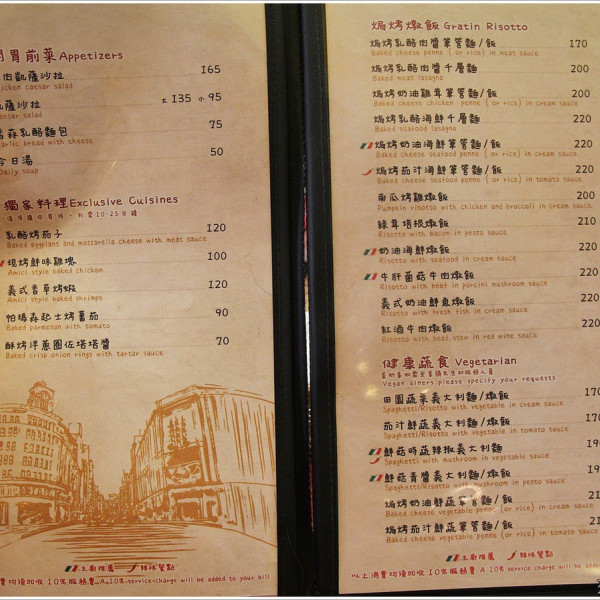 胃前菜 Appetizers
肉凱薩沙拉 165
chicken caesar salad
薩沙拉 大 135 小 95
caesar salad
蒜乳酪麵包 75
garlic bread with cheese
今日湯 50
Daily soup
獨家料理 Exclusive Cuisines
10-25分鐘
乳酪烤茄子 120
Baked eggplant and mozzarella cheese with meat sauce
燒烤鮮味雞塊 100
Amici style baked chicken
義式香草烤蝦 120
Amici style baked shrimps
帕瑪森起士烤蕃茄 90
Baked parmesan with tomato
酥烤洋蔥圈佐塔塔醬 70
Baked crisp onion rings with tartar sauce
主廚推薦 辣味餐點
10%服務費 A 10% service charge will be added to your bill
焗烤燉飯 Gratin Risotto
焗烤乳酪肉醬筆管麵/飯 170
Baked cheese penne (or rice) in meat sauce
焗烤乳酪肉醬千層麵 200
Baked meat lasagna
焗烤奶油雞茸筆管麵/飯 200
Baked cheese chicken penne (or rice) in cream sauce
焗烤乳酪海鮮千層麵 220
Baked seafood lasagna
焗烤奶油海鮮筆管麵/飯 220
Baked cheese seafood penne (or rice) in cream sauce
焗烤茄汁海鮮筆管麵/飯 220
Baked cheese seafood penne (or rice) in tomato sauce
南瓜烤雞燉飯 200
Pumpkin risotto with chicken and broccoli in cream sauce
綠茸培根燉飯 210
Risotto with bacon in pesto sauce
奶油海鮮燉飯 220
Risotto with seafood in cream sauce
牛肝菌菇牛肉燉飯 220
Risotto with beef in porcini mushroom sauce
義式奶油鮮魚燉飯 220
Risotto with fresh fish in cream sauce
紅酒牛肉燉飯 220
Risotto with beef stew in red wine sauce
健康蔬食 Vegetarian
Vegan diners please specify your requests
田園蔬菜義大利麵/燉飯
Spaghetti/Risotto with vegetable in cream sauce
茄汁鮮蔬義大利麵/燉飯
Spaghetti/Risotto with vegetable in tomato sauce
鮮菇時蔬辣椒義大利麵
Spaghetti with mushroom in vegetable sauce
鮮菇青醬義大利麵/燉飯
Spaghetti/Risotto with mushroom in pesto sauce
焗烤奶油鮮蔬筆管麵/飯
Baked cheese vegetable penne (or rice) in cream sauce
焗烤茄汁鮮蔬筆管麵/飯
Baked cheese vegetable penne (or rice) in tomato sauce
主廚推薦 辣味餐點
以上消費均須加收10%服務費 A 10% service charge will be added to your bill